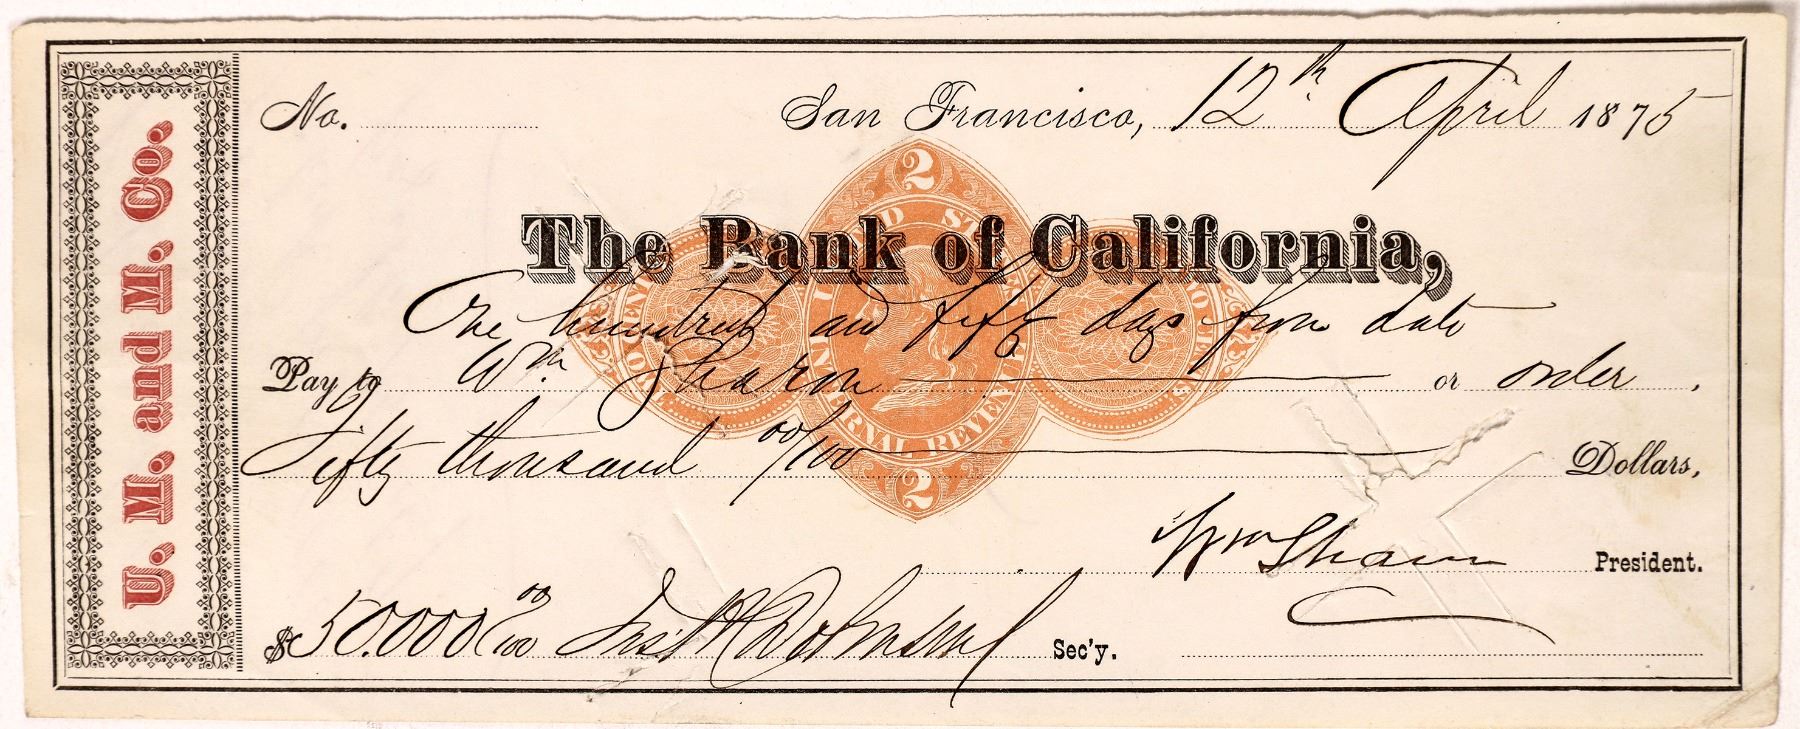 U. M. and M. Co.
No. San Francisco, 12th April 1875
2
UNITED STATES INTERNAL REVENUE
The Bank of California,
One hundred and fifty days from date
Pay to Wm Sharon or order
Fifty thousand 00/100 Dollars,
2
Wm Sharon President.
$50.000 00/100 Sec'y.